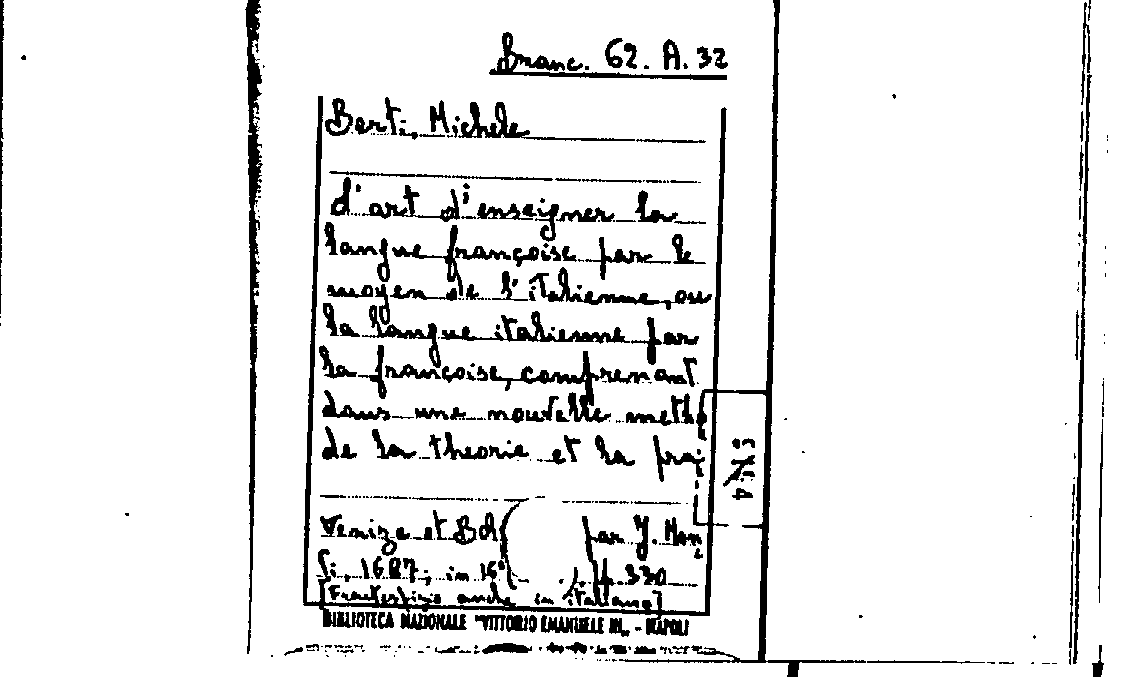 Branc. 62. A. 32
Berti, Michele
L'art d'enseigner la
langue françoise par le
moyen de l'italienne, ou
la langue italienne par
la françoise, comprenant
dans une nouvelle meth
de la theorie et la pra
Venize et Bol par J. Mon
ti, 1687; in 16° p. 330
[Frontespizio anche in italiano]
BIBLIOTECA NAZIONALE "VITTORIO EMANUELE III" - NAPOLI